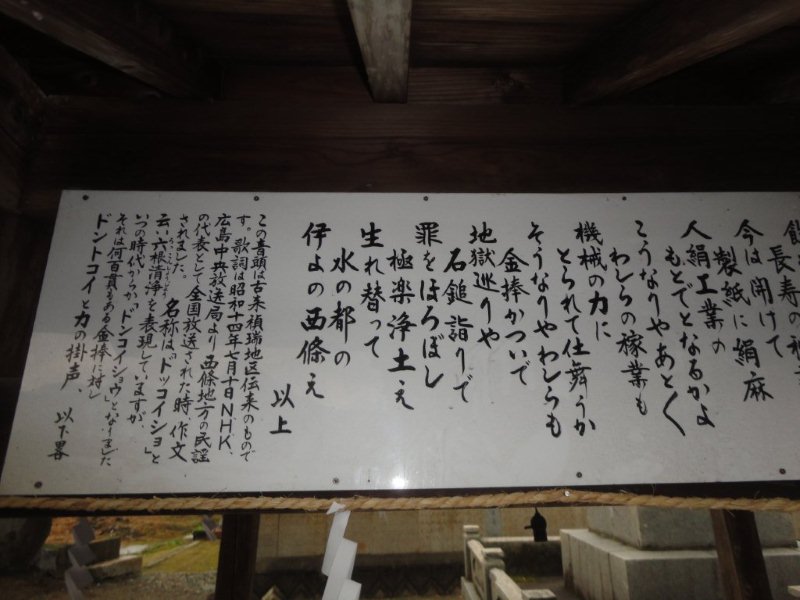 長寿の
今は開けて
製紙に絹麻
人絹工業の
もとでとなるかよ
こうなりやあとく
わしらの稼業も
機械の力に
とられて仕舞うか
そうなりやわしらも
金棒かついで
地獄巡りや
石鎚詣りで
罪をほろぼし
極楽浄土え
生れ替って
水の都の
伊よの西條え
以上
この音頭は古来禎瑞地区伝来のもので
す。歌詞は昭和十四年七月十日NHK、
広島中央放送局より西條地方の民謡
の代表として全国放送された時、作文
されました。 名称は「ドッコイショ」と
云い六根清浄を表現していますが
いつの時代からか「ドンコイショウ」となりました
それは何百貫もある金棒に対し
ドントコイと力の掛声、
以下畧